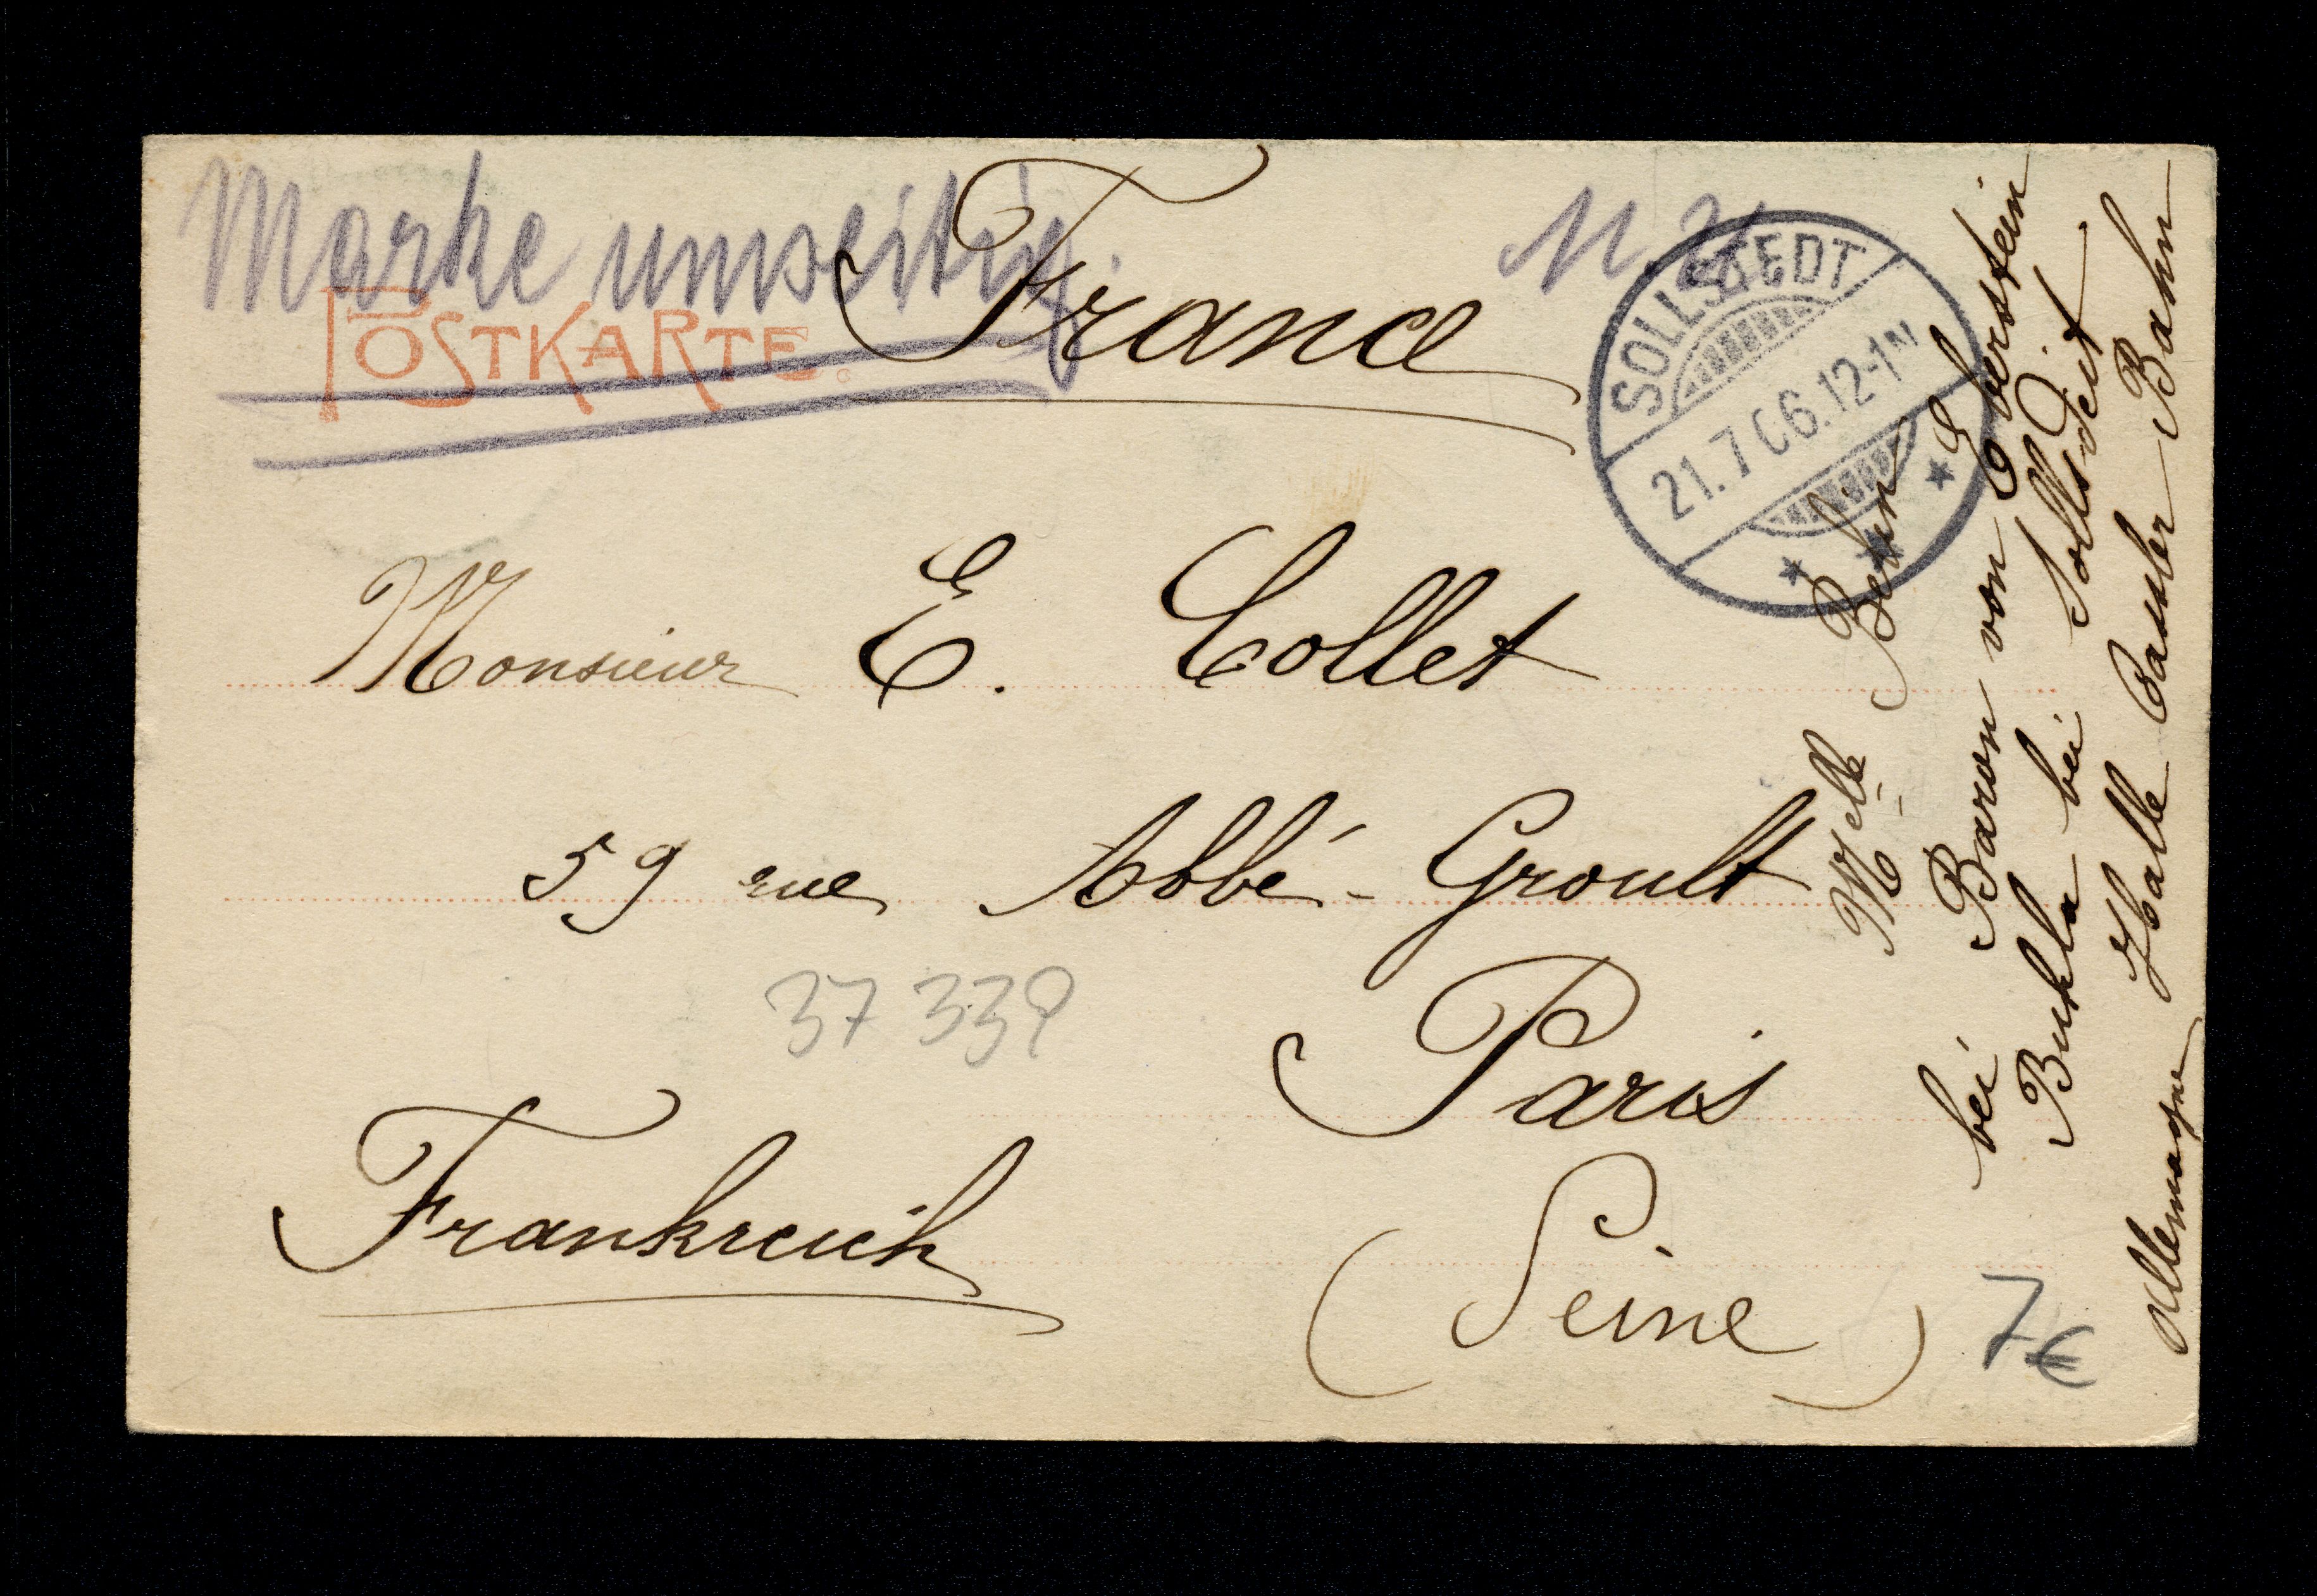 Marke umseitig.
POSTKARTE.
France
SOLLSTEDT
21.7 06.12-1N
Monsieur E. Collet
59 rue Abbé-Groult
37 339
Paris
Frankreich
(Seine)
7€
Melle
bei Baron von Eberstein
Buhla bei Sollstedt
Halle Cassler Bahn
Allemagne